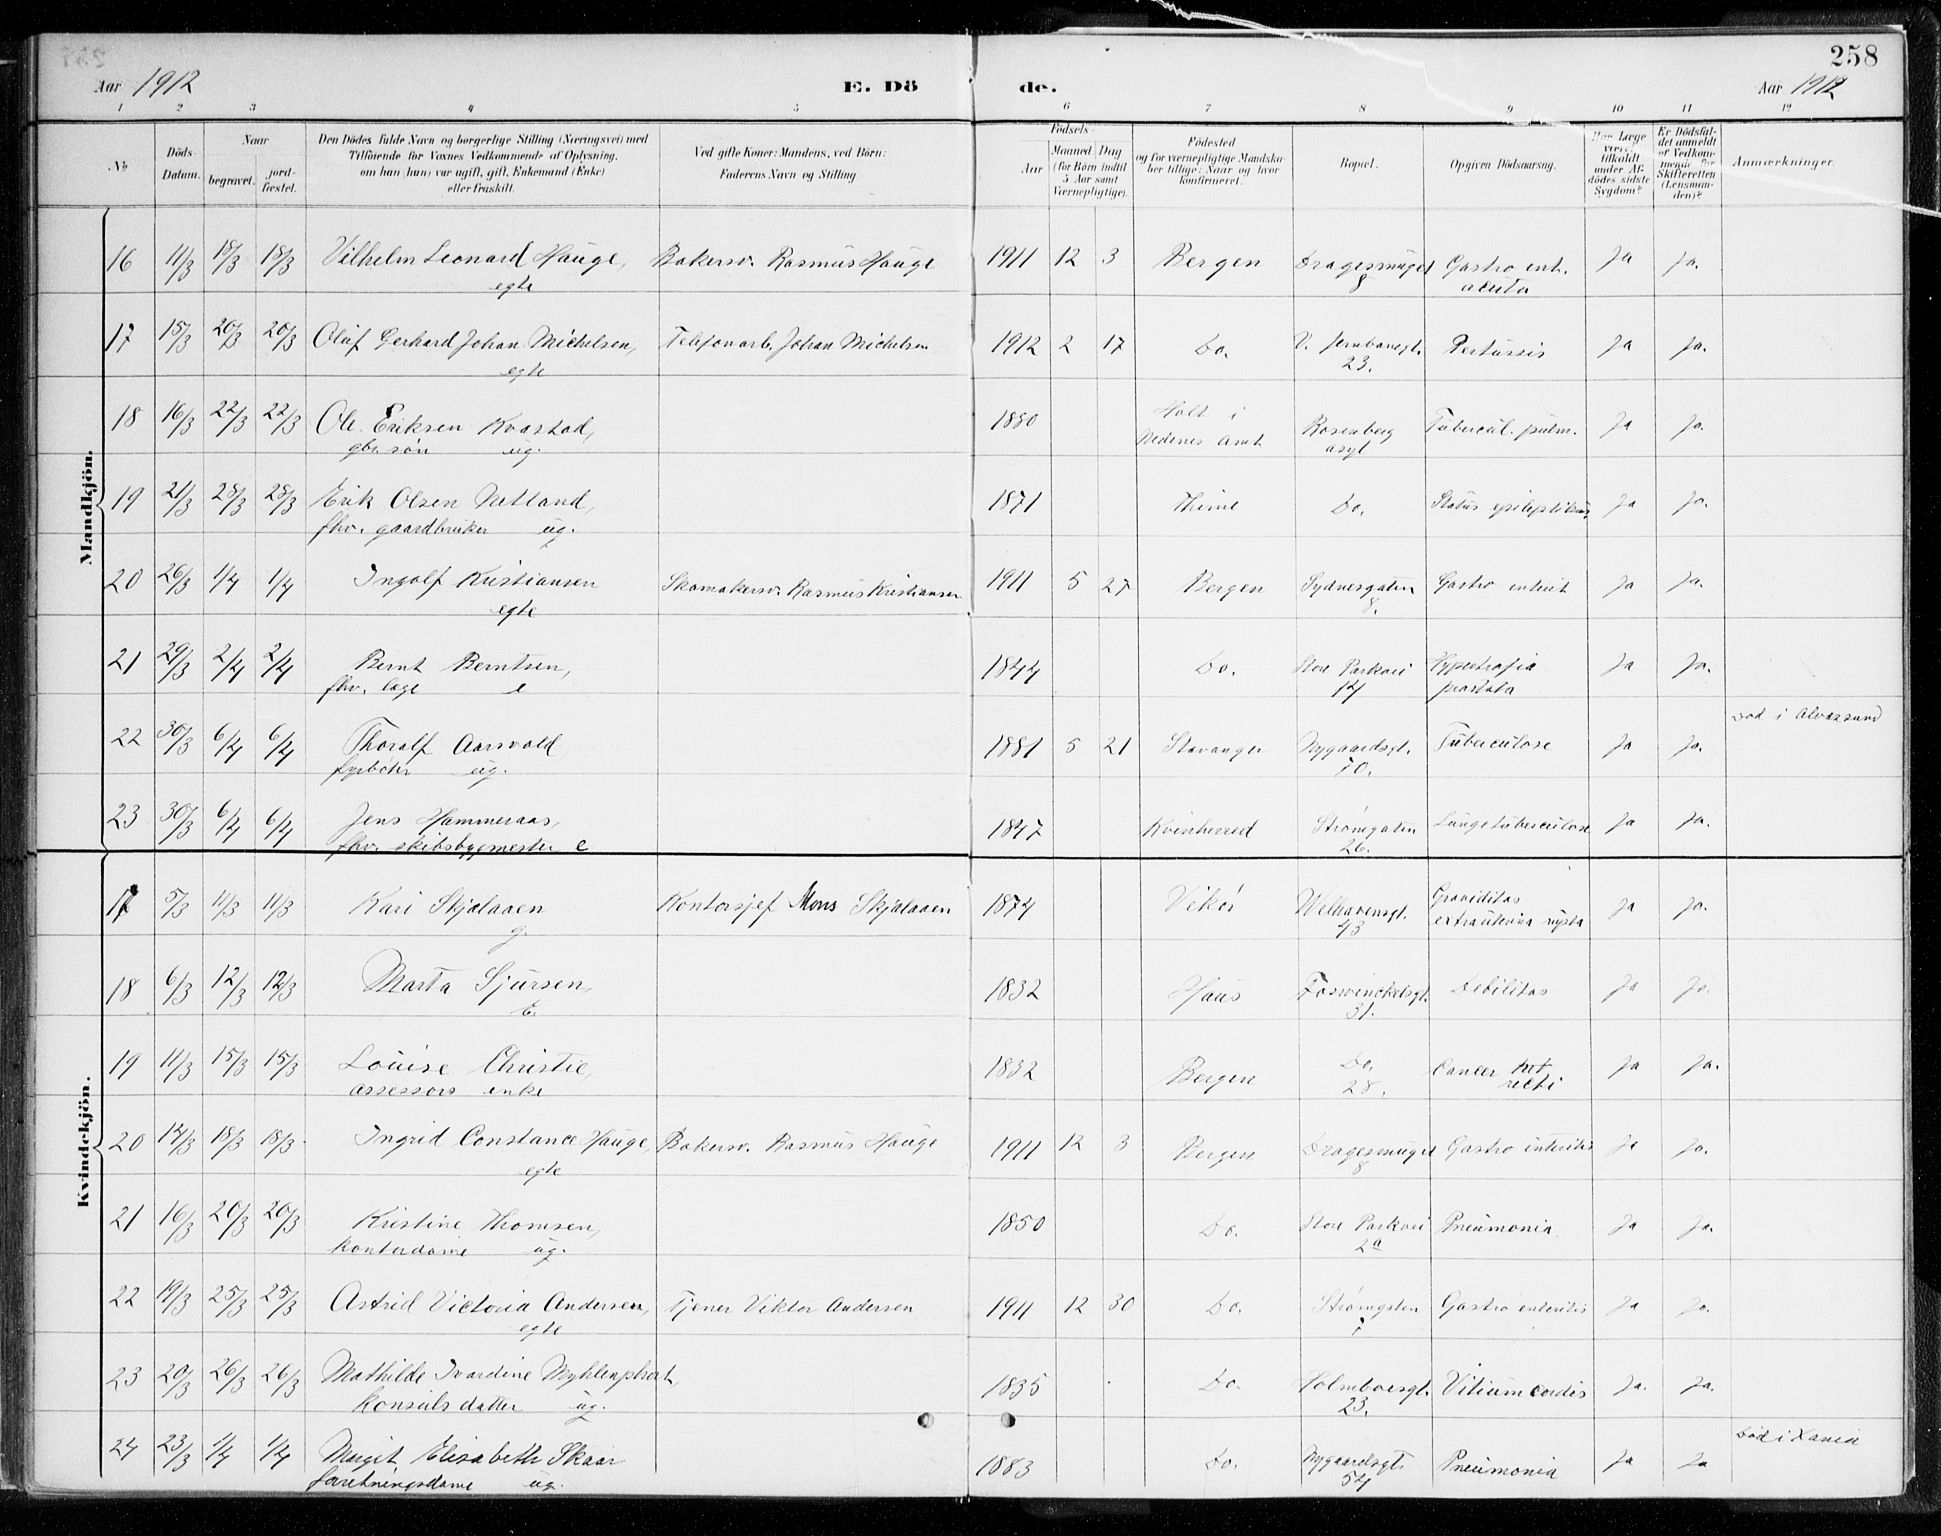 258
Aar 1912 E. Dö de. Aar 1912
1 2 3 4 5 6 7 8 9 10 11 12
No
Döds-Datum.
Naar
begravet.
jord-fæstet.
Den Dödes fulde Navn og borgerlige Stilling (Næringsvei) med
Tilföiende for Voxnes Vedkommende af Oplysning,
om han (hun) var ugift, gift, Enkemand (Enke)
eller fraskilt.
Ved gifte Koner: Mandens, ved Börn:
Faderens Navn og Stilling
Födsels-
Aar
Maaned Dag
(for Börn indtil
5 Aar samt
Værnepligtige).
Födested
og for værnepligtige Mandska-
ber tillige: Naar og hvor
konfirmeret.
Bopæl.
Opgiven Dödsaarsag.
Har Læge
været
tilkaldt
under Af-
dödes sidste
Sygdom?
Er Dödsfal-
det anmeldt
for Vedkom-
mende for
Skifteretten
(Lensman-
den)?
Anmærkninger.
Mandkjön.
16 11/3 18/3 18/3 Vilhelm Leonard Hauge, Bakersv. Rasmus Hauge 1911 12 3 Bergen Dragesmuget Gastro ent. Ja Ja.
egte 8 acuta
17 15/3 20/3 20/3 Oluf Gerhard Johan Michelsen, Telefonarb. Johan Michelsen 1912 2 17 Do. V. Jernbanegt. Pertussis Ja Ja.
egte 23.
18 16/3 22/3 22/3 Ole Eriksen Kvastad, 1880 Holt i Rosenberg Tubercul. pulm. Ja Ja.
gbr. søn ug. Nedenes Amt asyl
19 21/3 28/3 28/3 Erik Olsen Netland, 1871 Thime Do. Status epileptikus Ja Ja.
fhv. gaardbruker ug.
20 26/3 1/4 1/4 Ingolf Kristiansen Skomakersv. Rasmus Kristiansen 1911 5 27 Bergen Sydnesgaten Gastro enterit Ja Ja.
egte 8.
21 29/3 2/4 2/4 Bernt Berntsen, 1844 Do. Store Parkvei Hypertrofia Ja Ja.
fhv. læge e 14 prostata
Død i Alvøssund
22 30/3 6/4 6/4 Thoralf Aarsvold 1881 5 21 Stavanger Nygaardsgt. Tuberculose Ja Ja.
fyrbøter ug. 70.
23 30/3 6/4 6/4 Jens Hammeraas, 1847 Kvinherred Strømgaten Lungetuberculose Ja Ja.
fhv. skibsbygmester e 26.
Kvindekjön.
17 5/3 11/3 11/3 Kari Skjælaaen Kontorsjef Mons Skjælaaen 1874 Vikør Welhavensgt. Graviditas Ja Ja.
g. 43 extrauterina rupta
18 6/3 12/3 12/3 Marta Sjursen, 1832 Haus Foswinckelsgt. Debilitas Ja Ja.
E. 31.
19 11/3 15/3 15/3 Louise Christie, 1832 Bergen Do. Cancer Ja Ja.
assessors enke 28. recti
20 14/3 18/3 18/3 Ingrid Constance Hauge, Bakersv. Rasmus Hauge 1911 12 3 Bergen Dragesmuget Gastro enteritis Ja Ja.
egte 8
21 16/3 20/3 20/3 Kristine Thomsen, 1850 Do. Store Parkvei Pneumonia Ja Ja.
kontordame ug. 2a
22 19/3 25/3 25/3 Astrid Victoria Andersen, Tjener Viktor Andersen 1911 12 30 Do. Strømgaten Gastro enteritis Ja Ja.
egte
23 20/3 26/3 26/3 Mathilde Ivardine Myhlenphort, 1835 Do. Holmboesgt. Vitium cordis Ja. Ja.
konsuls datter ug. 23.
Død i Xania
24 23/3 1/4 1/4 Margit Elisabeth Skaar 1883 Do. Nygaardsgt. Pneumonia Ja Ja
forretningsdame ug. 54